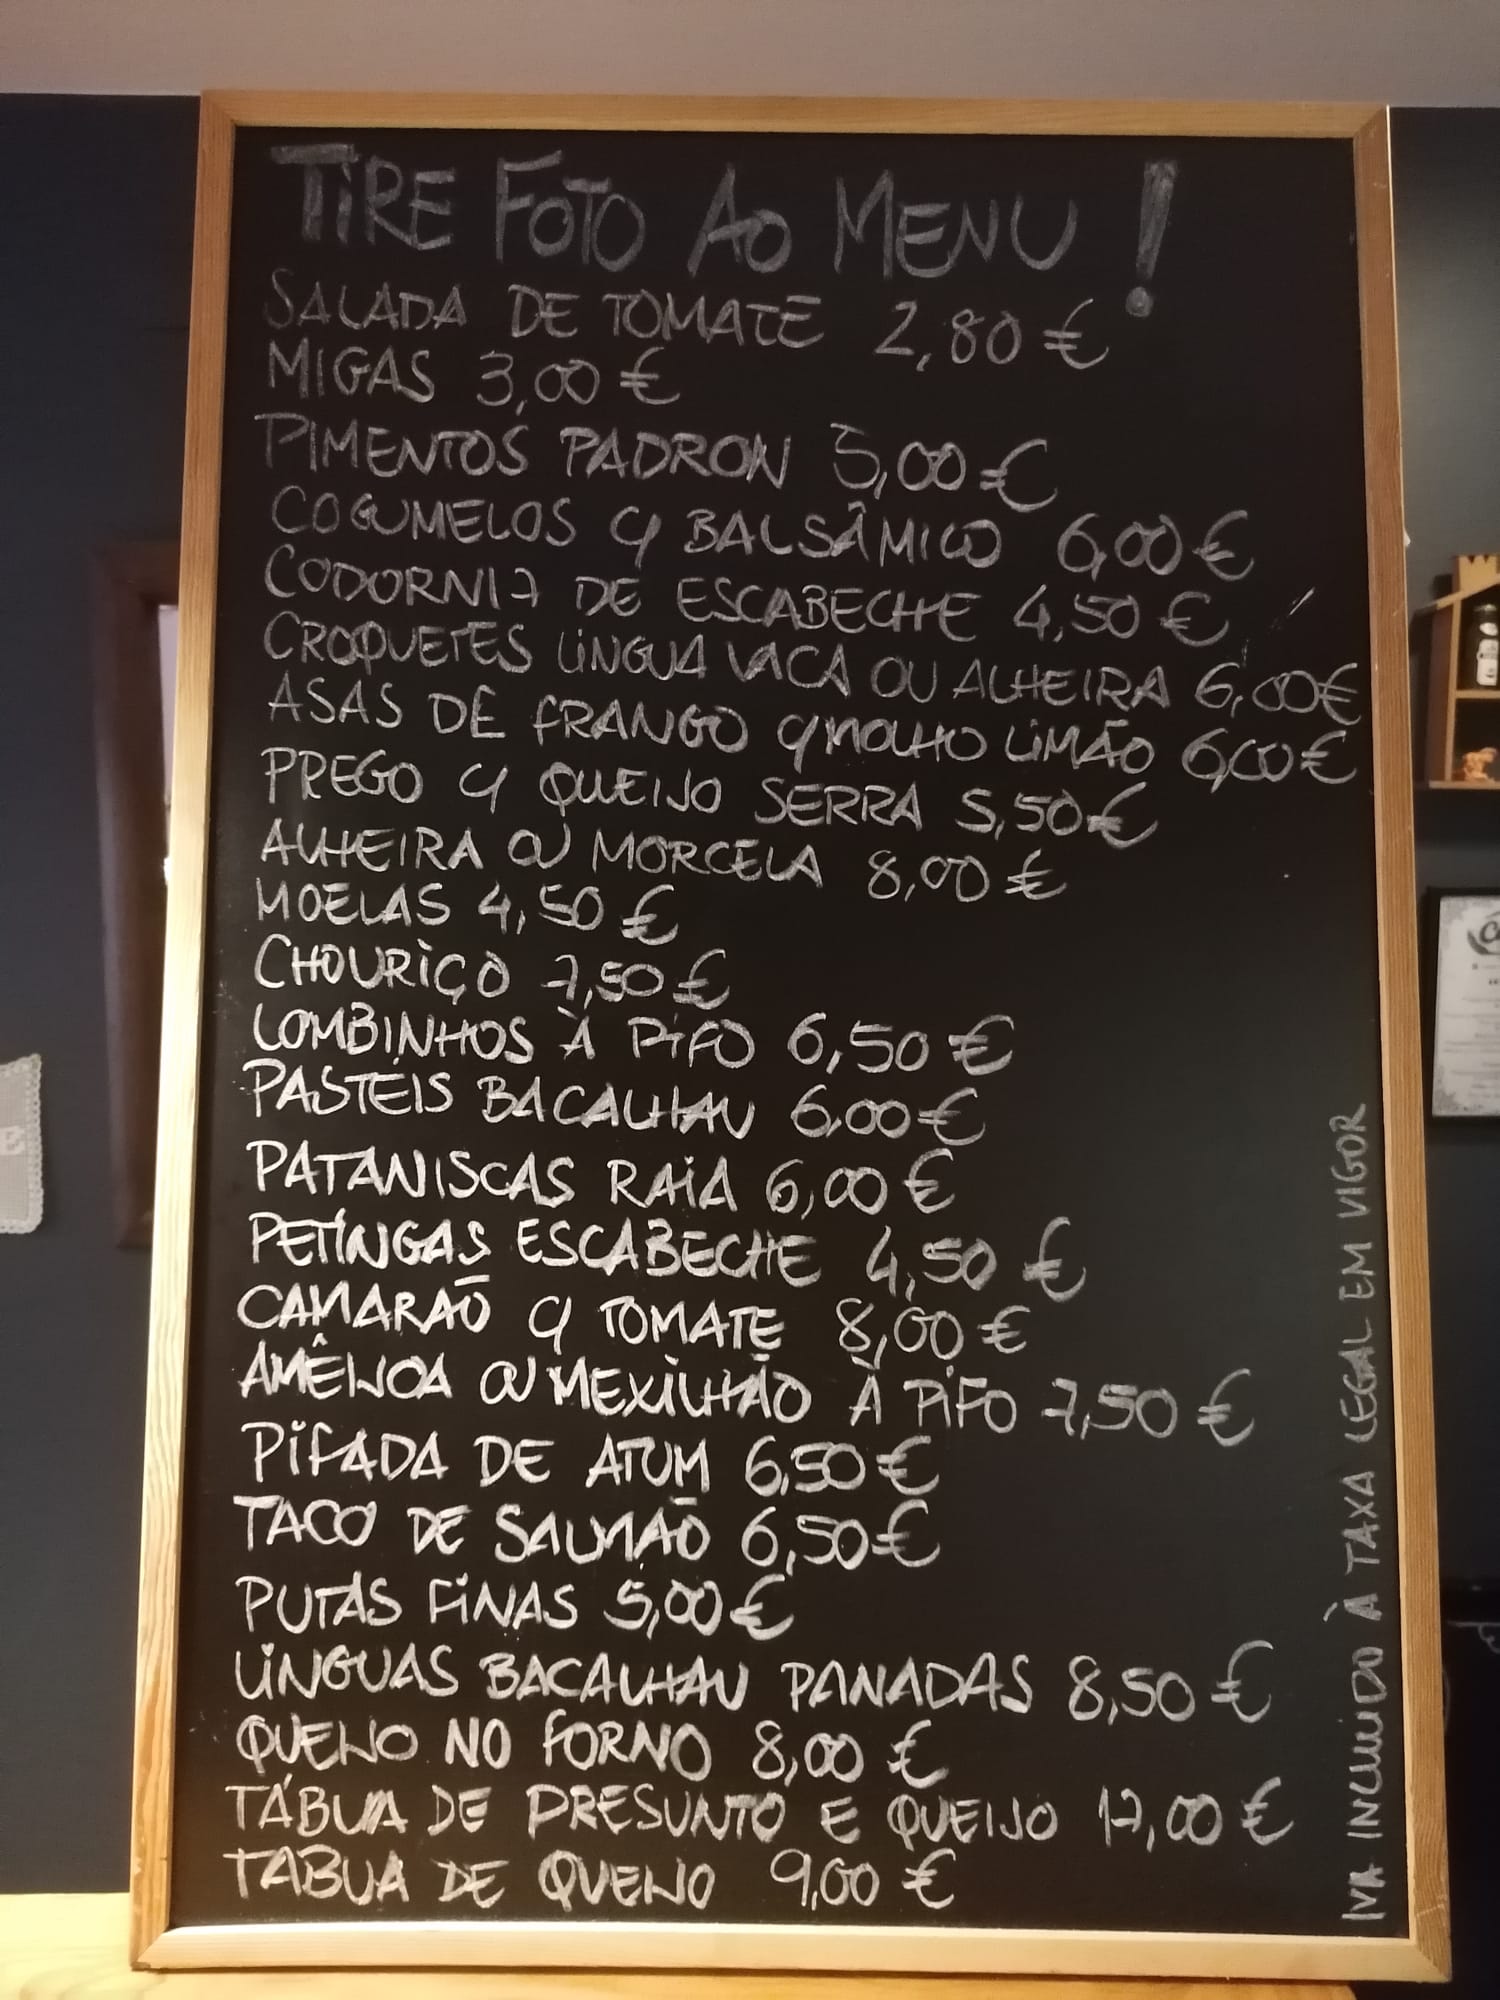 TIRE FOTO AO MENU!
SALADA DE TOMATE 2,80 €
MIGAS 3,00 €
PIMENTOS PADRON 5,00 €
COGUMELOS C/ BALSÂMICO 6,00 €
CODORNIZ DE ESCABECHE 4,50 €
CROQUETES LINGUA VACA OU ALHEIRA 6,00 €
ASAS DE FRANGO C/ MOLHO LIMÃO 6,00 €
PREGO C/ QUEIJO SERRA 5,50 €
ALHEIRA OU MORCELA 8,00 €
MOELAS 4,50 €
CHOURIÇO 7,50 €
LOMBINHOS À PIFO 6,50 €
PASTÉIS BACALHAU 6,00 €
PATANISCAS RAIA 6,00 €
PETINGAS ESCABECHE 4,50 €
CAMARÃO C/ TOMATE 8,00 €
AMÊIJOA OU MEXILHÃO À PIFO 7,50 €
PIFADA DE ATUM 6,50 €
TACO DE SALMÃO 6,50 €
PUTAS FINAS 5,00 €
LINGUAS BACALHAU PANADAS 8,50 €
QUEIJO NO FORNO 8,00 €
TÁBUA DE PRESUNTO E QUEIJO 12,00 €
TABUA DE QUEIJO 9,00 €
IVA INCLUIDO À TAXA LEGAL EM VIGOR